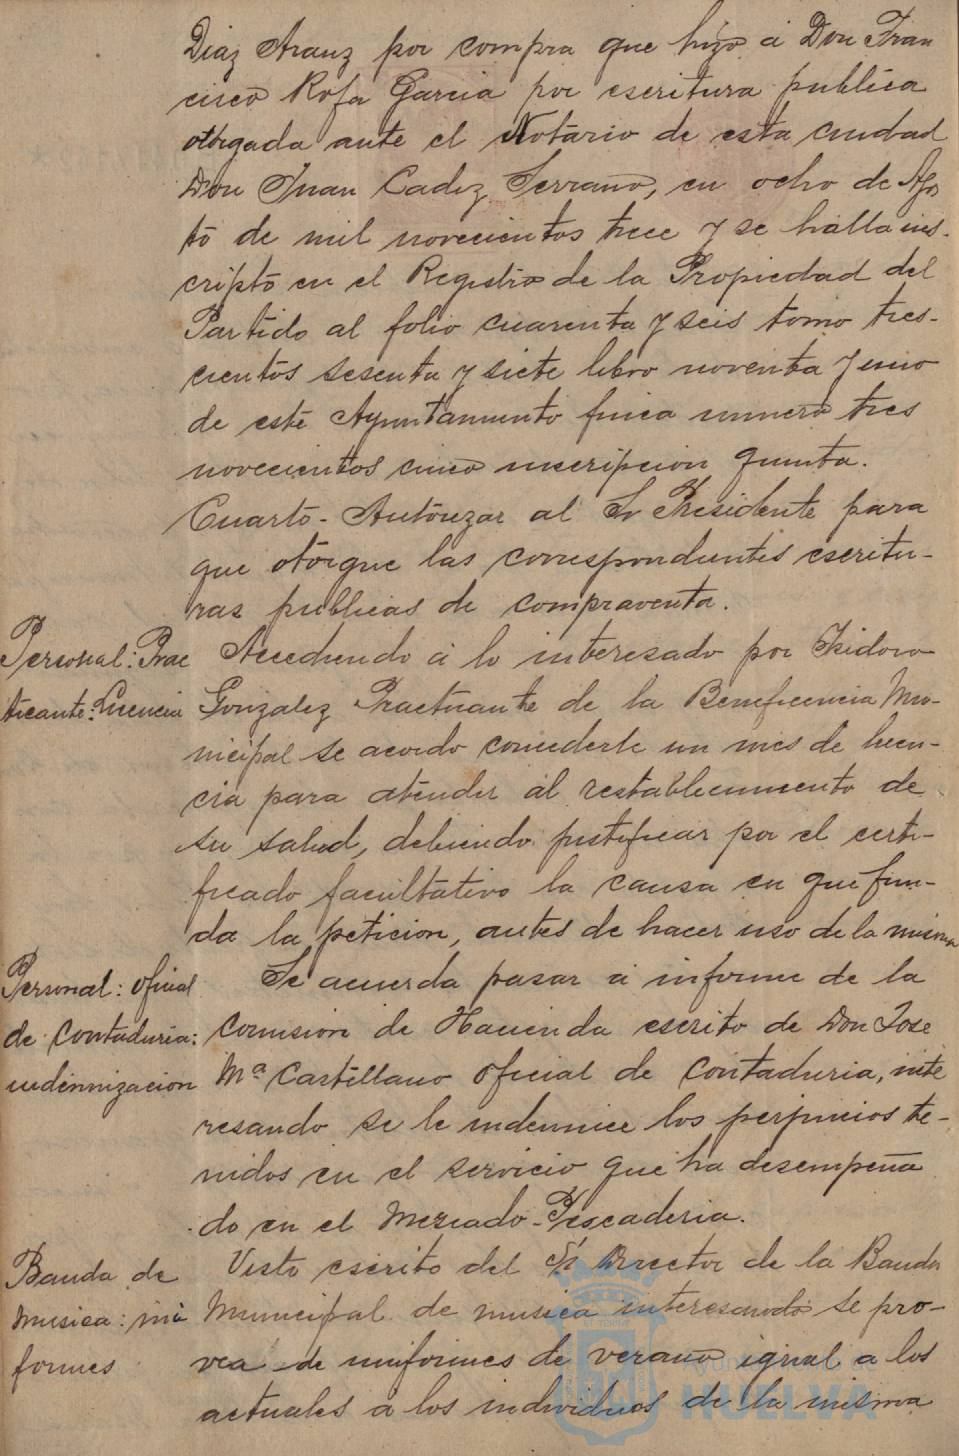 Diaz Aranz por compra que hizo á Don Fran
cisco Rofa Garcia por escritura publica
otorgada ante el Notario de esta ciudad
Don Juan Cadiz Serrano, en ocho de Agos
to de mil novecientos trece y se halla ins-
cripto en el Registro de la Propiedad del
Partido al folio cuarenta y seis tomo tres-
cientos sesenta y siete libro noventa y uno
de este Ayuntamiento finca numero tres
novecientos cinco inscripcion quinta.
Cuarto - Autorizar al Sr Presidente para
que otorgue las correspondientes escritu-
ras publicas de compraventa.
Personal: Prac
ticante: Licencia
Accediendo á lo interesado por Isidoro
Gonzalez Practicante de la Beneficencia Mu-
nicipal se acordo concederle un mes de licen-
cia para atender al restablecimiento de
su salud, debiendo justificar por el certi-
ficado facultativo la causa en que fun-
da la peticion, antes de hacer uso de la misma
Personal: oficial
de contaduria:
indennizacion
Se acuerda pasar á informe de la
Comision de Hacienda escrito de Don Jose
Mª Castellano oficial de Contaduria, inte
resando se le indennice los perjuicios te-
nidos en el servicio que ha desempeña
do en el Mercado-Pescaderia.
Banda de
Musica: uni
formes
Visto escrito del Sr Director de la Banda
Municipal de musica interesando se pro-
vea de uniformes de verano igual a los
actuales á los individuos de la misma
Ayuntamiento de
HUELVA